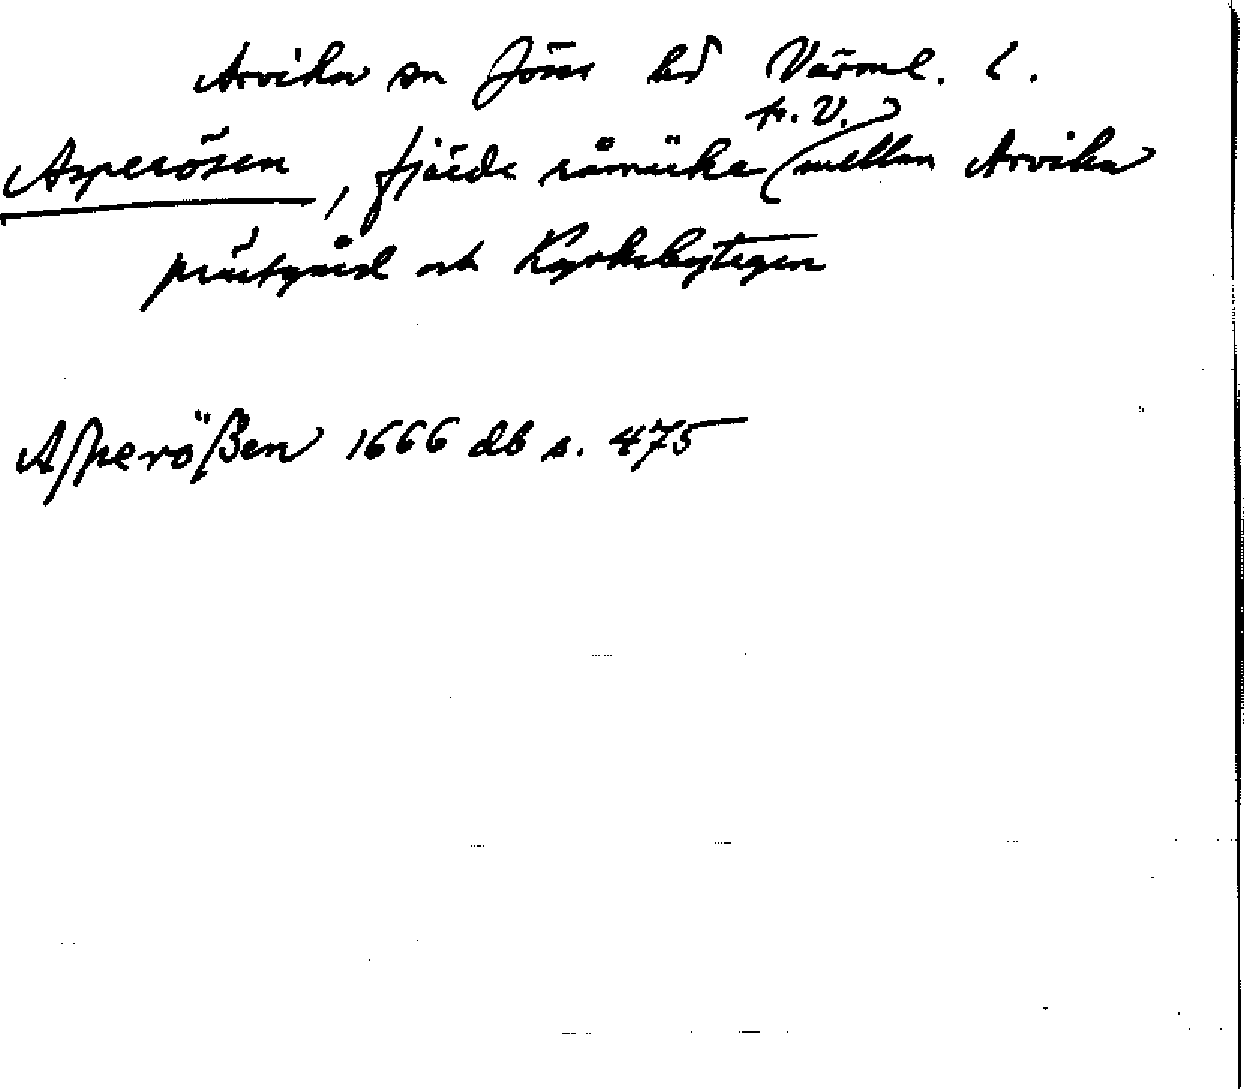 Arvika sn Jösse hd Värml. l.
Asperösen, fjärde råmärke fr. V. mellan Arvika
prästgård och Kyrkebytegen
Asperößen 1666 db s. 475